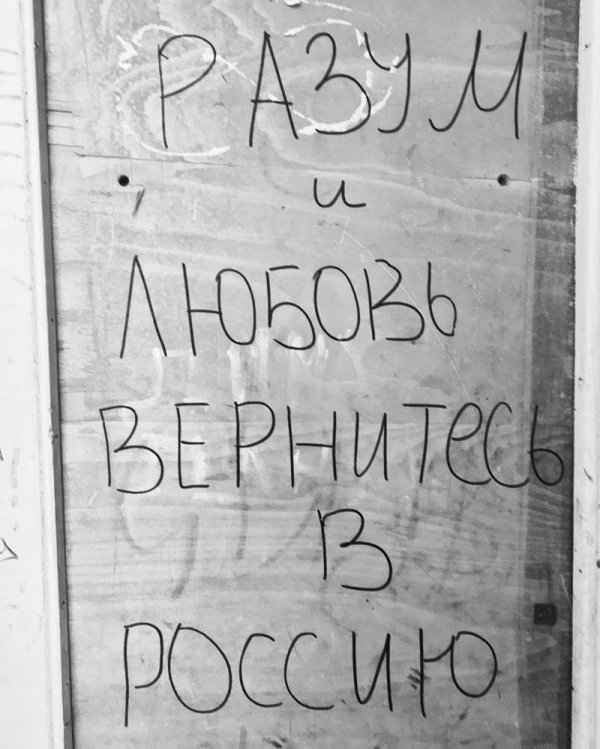 РАЗУМ
и
ЛЮБОВЬ
ВЕРНИТЕСЬ
В
РОССИЮ